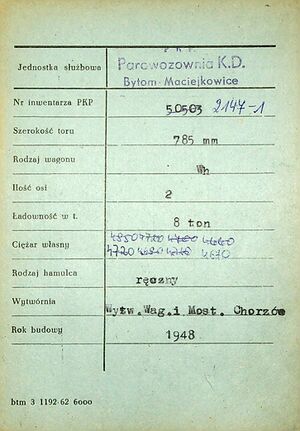 P K P
Jednostka służbowa Parowozownia K.D.
Bytom-Maciejkowice
Nr inwentarza PKP 50503 2147-1
Szerokość toru 785 mm
Rodzaj wagonu Wh
Ilość osi 2
Ładowność w t. 8 ton
Ciężar własny 4850 4720 4660
4720 4670
Rodzaj hamulca ręczny
Wytwórnia Wytw.Wag.i Most. Chorzów
Rok budowy 1948
btm 3 1192-62 6000